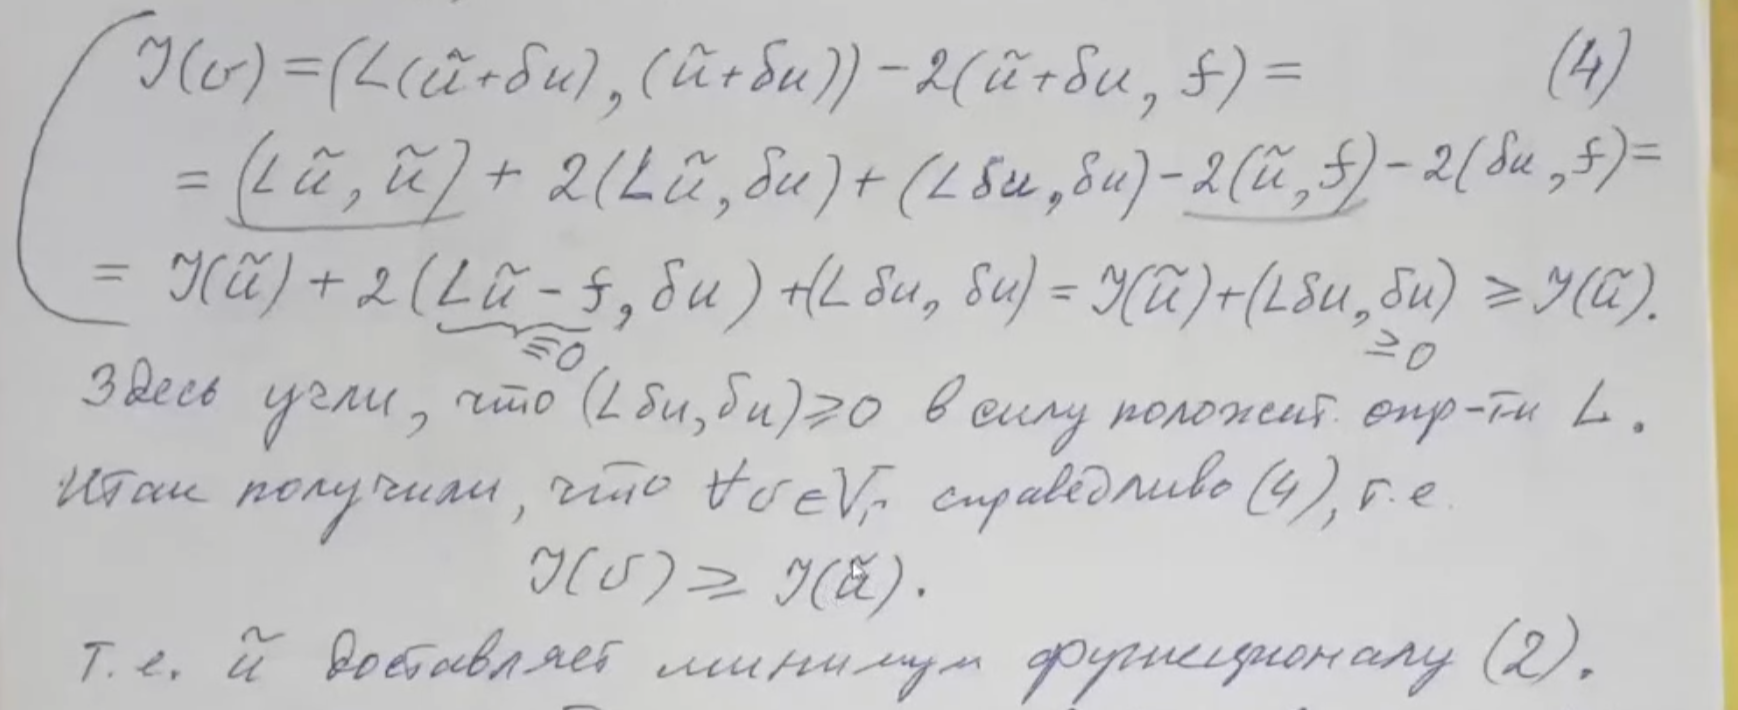 J(v) = (L(ũ+δu), (ũ+δu)) − 2(ũ+δu, f) = (4)
= (Lũ, ũ) + 2(Lũ, δu) + (Lδu, δu) − 2(ũ, f) − 2(δu, f) =
= J(ũ) + 2(Lũ − f, δu) + (Lδu, δu) = J(ũ) + (Lδu, δu) ≥ J(ũ).
≡0 ≥0
Здесь учли, что (Lδu, δu) ≥ 0 в силу положит. опр-ти L.
Итак получили, что ∀v∈V_Γ справедливо (4), т.е.
J(v) ≥ J(ũ).
т.е. ũ доставляет минимум функционалу (2).